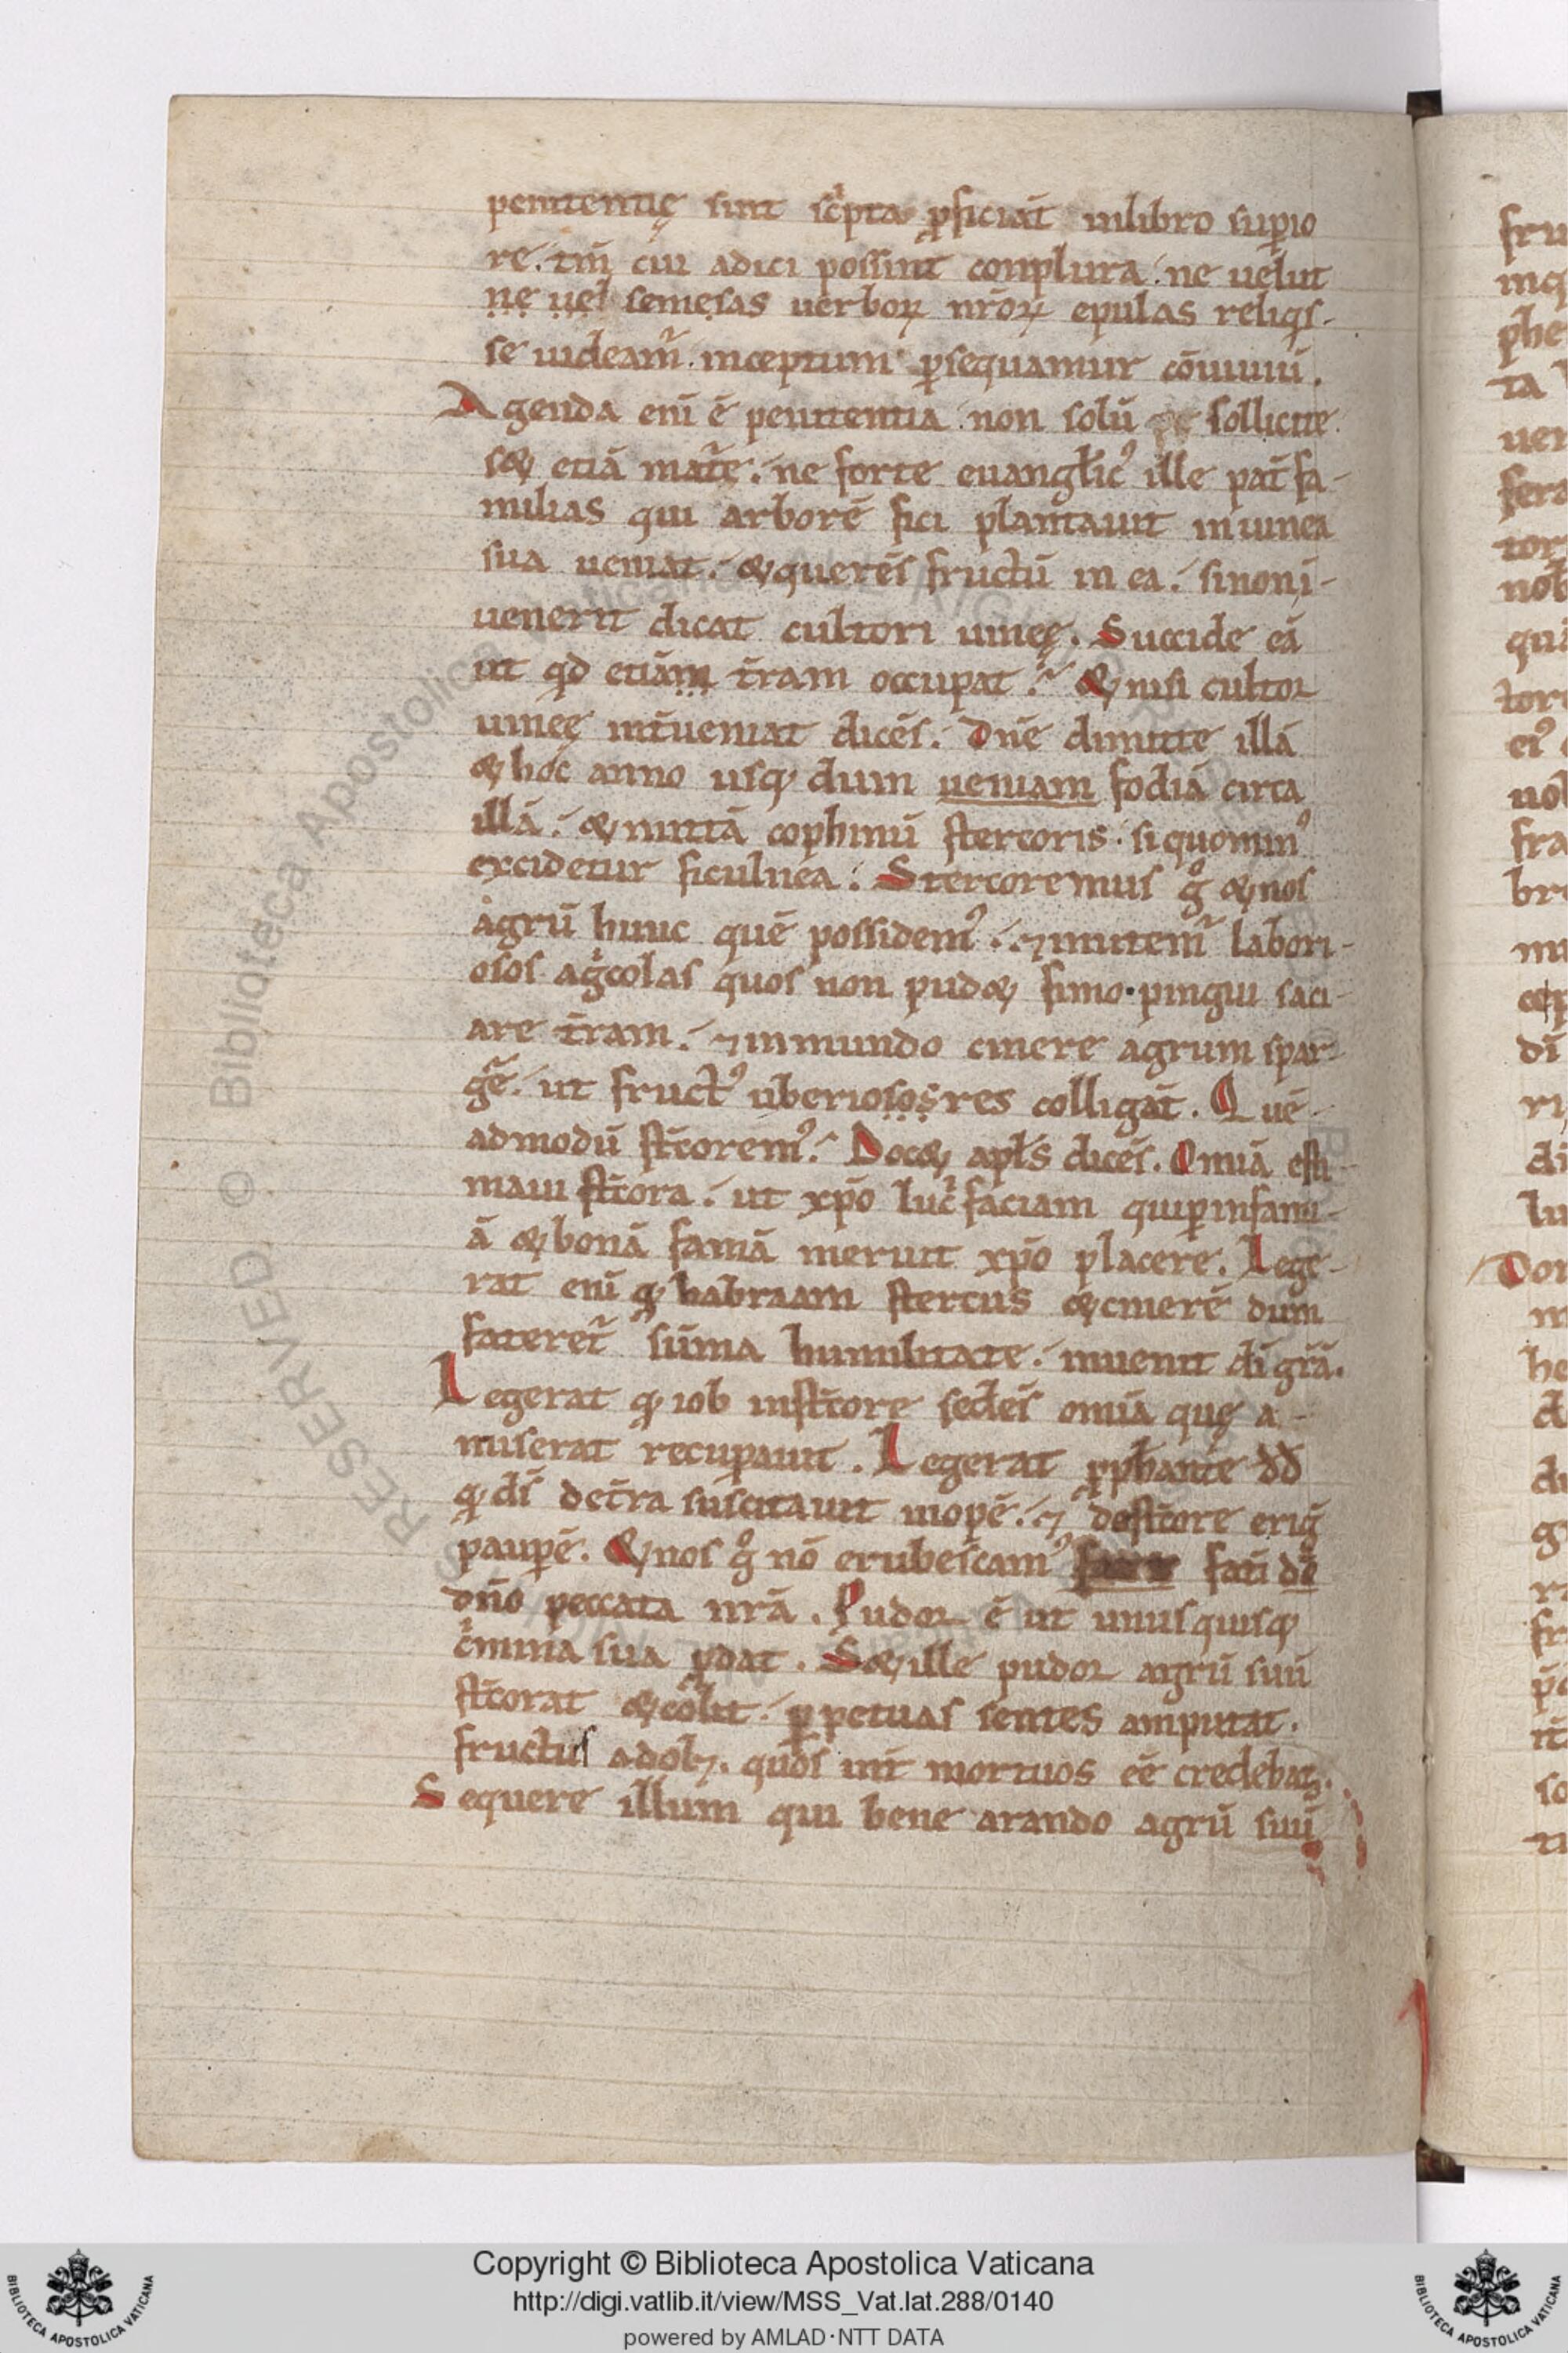 penitentię sint sc̄pta ꝓficiāt inlibro supio
re. tm̄ cui adici possint conplura. ne uelut
ne uel semesas uerboꝝ nr̄oꝝ epulas reliqis-
se uideam᷑. inceptum ꝑsequamur cōuiuiū.
Agenda eni ē penitentia non solū sollicite
s& etiā mat᷑e. ne forte euangłic᷒ ille pat̄fa-
milias qui arborē fici plantauit inuinea
sua ueniat. &querēs fructū in ea. sinoni-
uenerit dicat cultori uineę. Succide eā
ut qd etiām t̄ram occupat. & nisi cultor
uineę int̄ueniat dicēs. Dn̄e dimitte illā
& hoc anno usq; dum ueniam fodiā circa
illā. & mittā cophinū stercoris. si quomin᷒
excidetur ficulnea. Stercoremus gͦ & nos
agrū hunc quē possidem᷒. ⁊imitem᷑ labori-
osos agͥcolas quos non pud& fimo pingui saci-
are t̄ram. ⁊inmundo cinere agrum spar-
ḡe. ut fruct᷒ uberiososres colligāt. Quē-
admodū st̄corem᷒. Doc& apłs dicēs. Omīa esti-
maui st̄cora. ut xp̄o lucͥfaciam quiꝑinfami-
ā & bonā famā meruit xp̄o placere. Lege-
rat eni q; habraam stercus & cinerē dum
fateret᷑ sūma humilitate. inuenit di grā.
Legerat q; iob inst̄core sedēs omīa quę a-
miserat recuꝑauit. Legerat ꝓpħante dd̄
q; dī det̄ra suscitauit inopē. ⁊ dest̄core erig̃
pauꝑē. & nos gͦ nō erubescam᷒ fat̄i de
dn̄o peccata nr̄a. Pudor ē ut unusquisq;
cͥmina sua ꝓdat. S& ille pudor agrū suū
st̄corat & colit. ꝑpetuas sentes amputat.
fructus adol⁊. quos int̄ mortuos eē credebat.
Sequere illum qui bene arando agrū suū
Copyright © Biblioteca Apostolica Vaticana
http://digi.vatlib.it/view/MSS_Vat.lat.288/0140
powered by AMLAD·NTT DATA